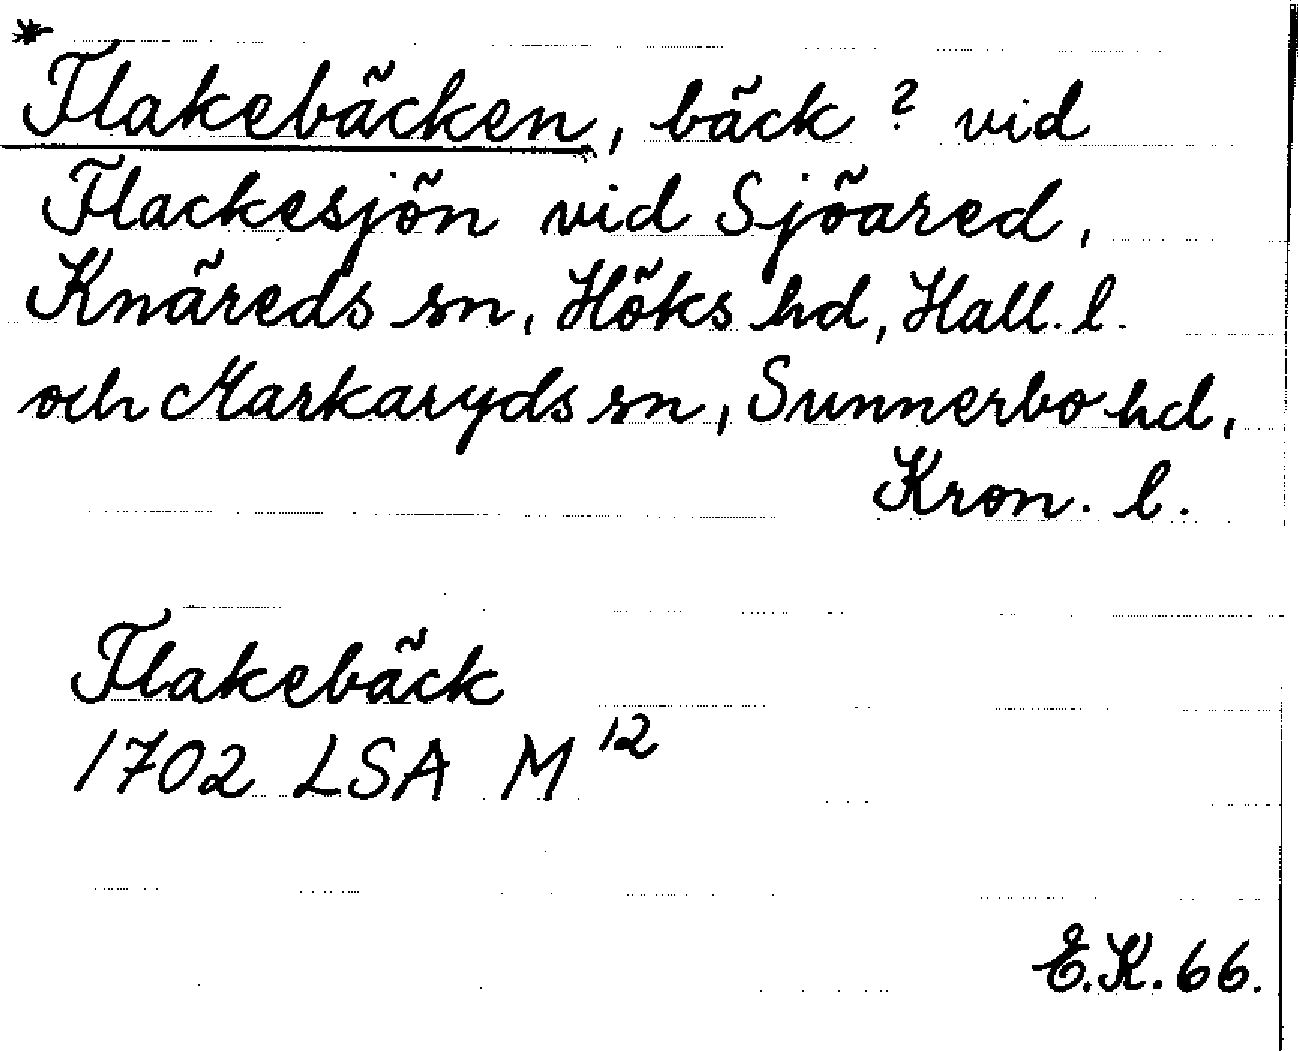 *
Flakebäcken, bäck? vid
Flackesjön vid Sjöared,
Knäreds sn, Höks hd, Hall. l.
och Markaryds sn, Sunnerbo hd,
Kron. l.
Flakebäck
1702 LSA M 12
E.K. 66.